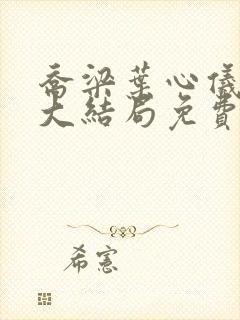 喬梁葉心儀
大結局免費
希憲